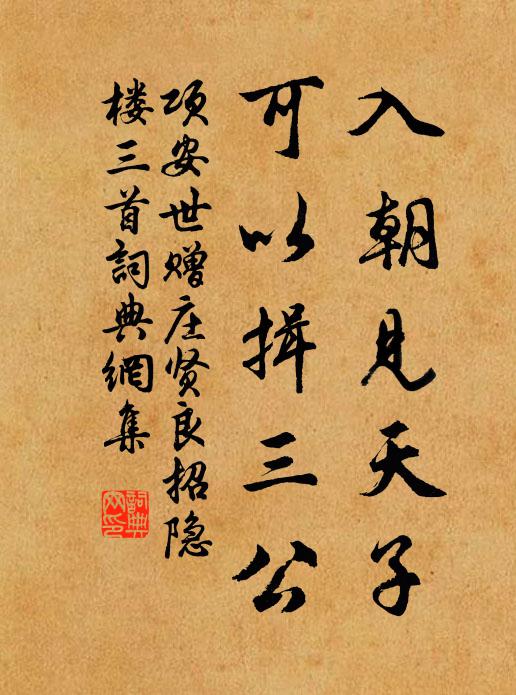 入朝见天子
可以揖三公
项安世赠庄贤良招隐
楼三首詞典網集
詞典
网印